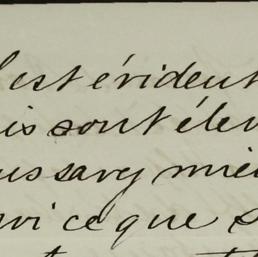 l est évident
is sont élev
us savez mie
rvice que s